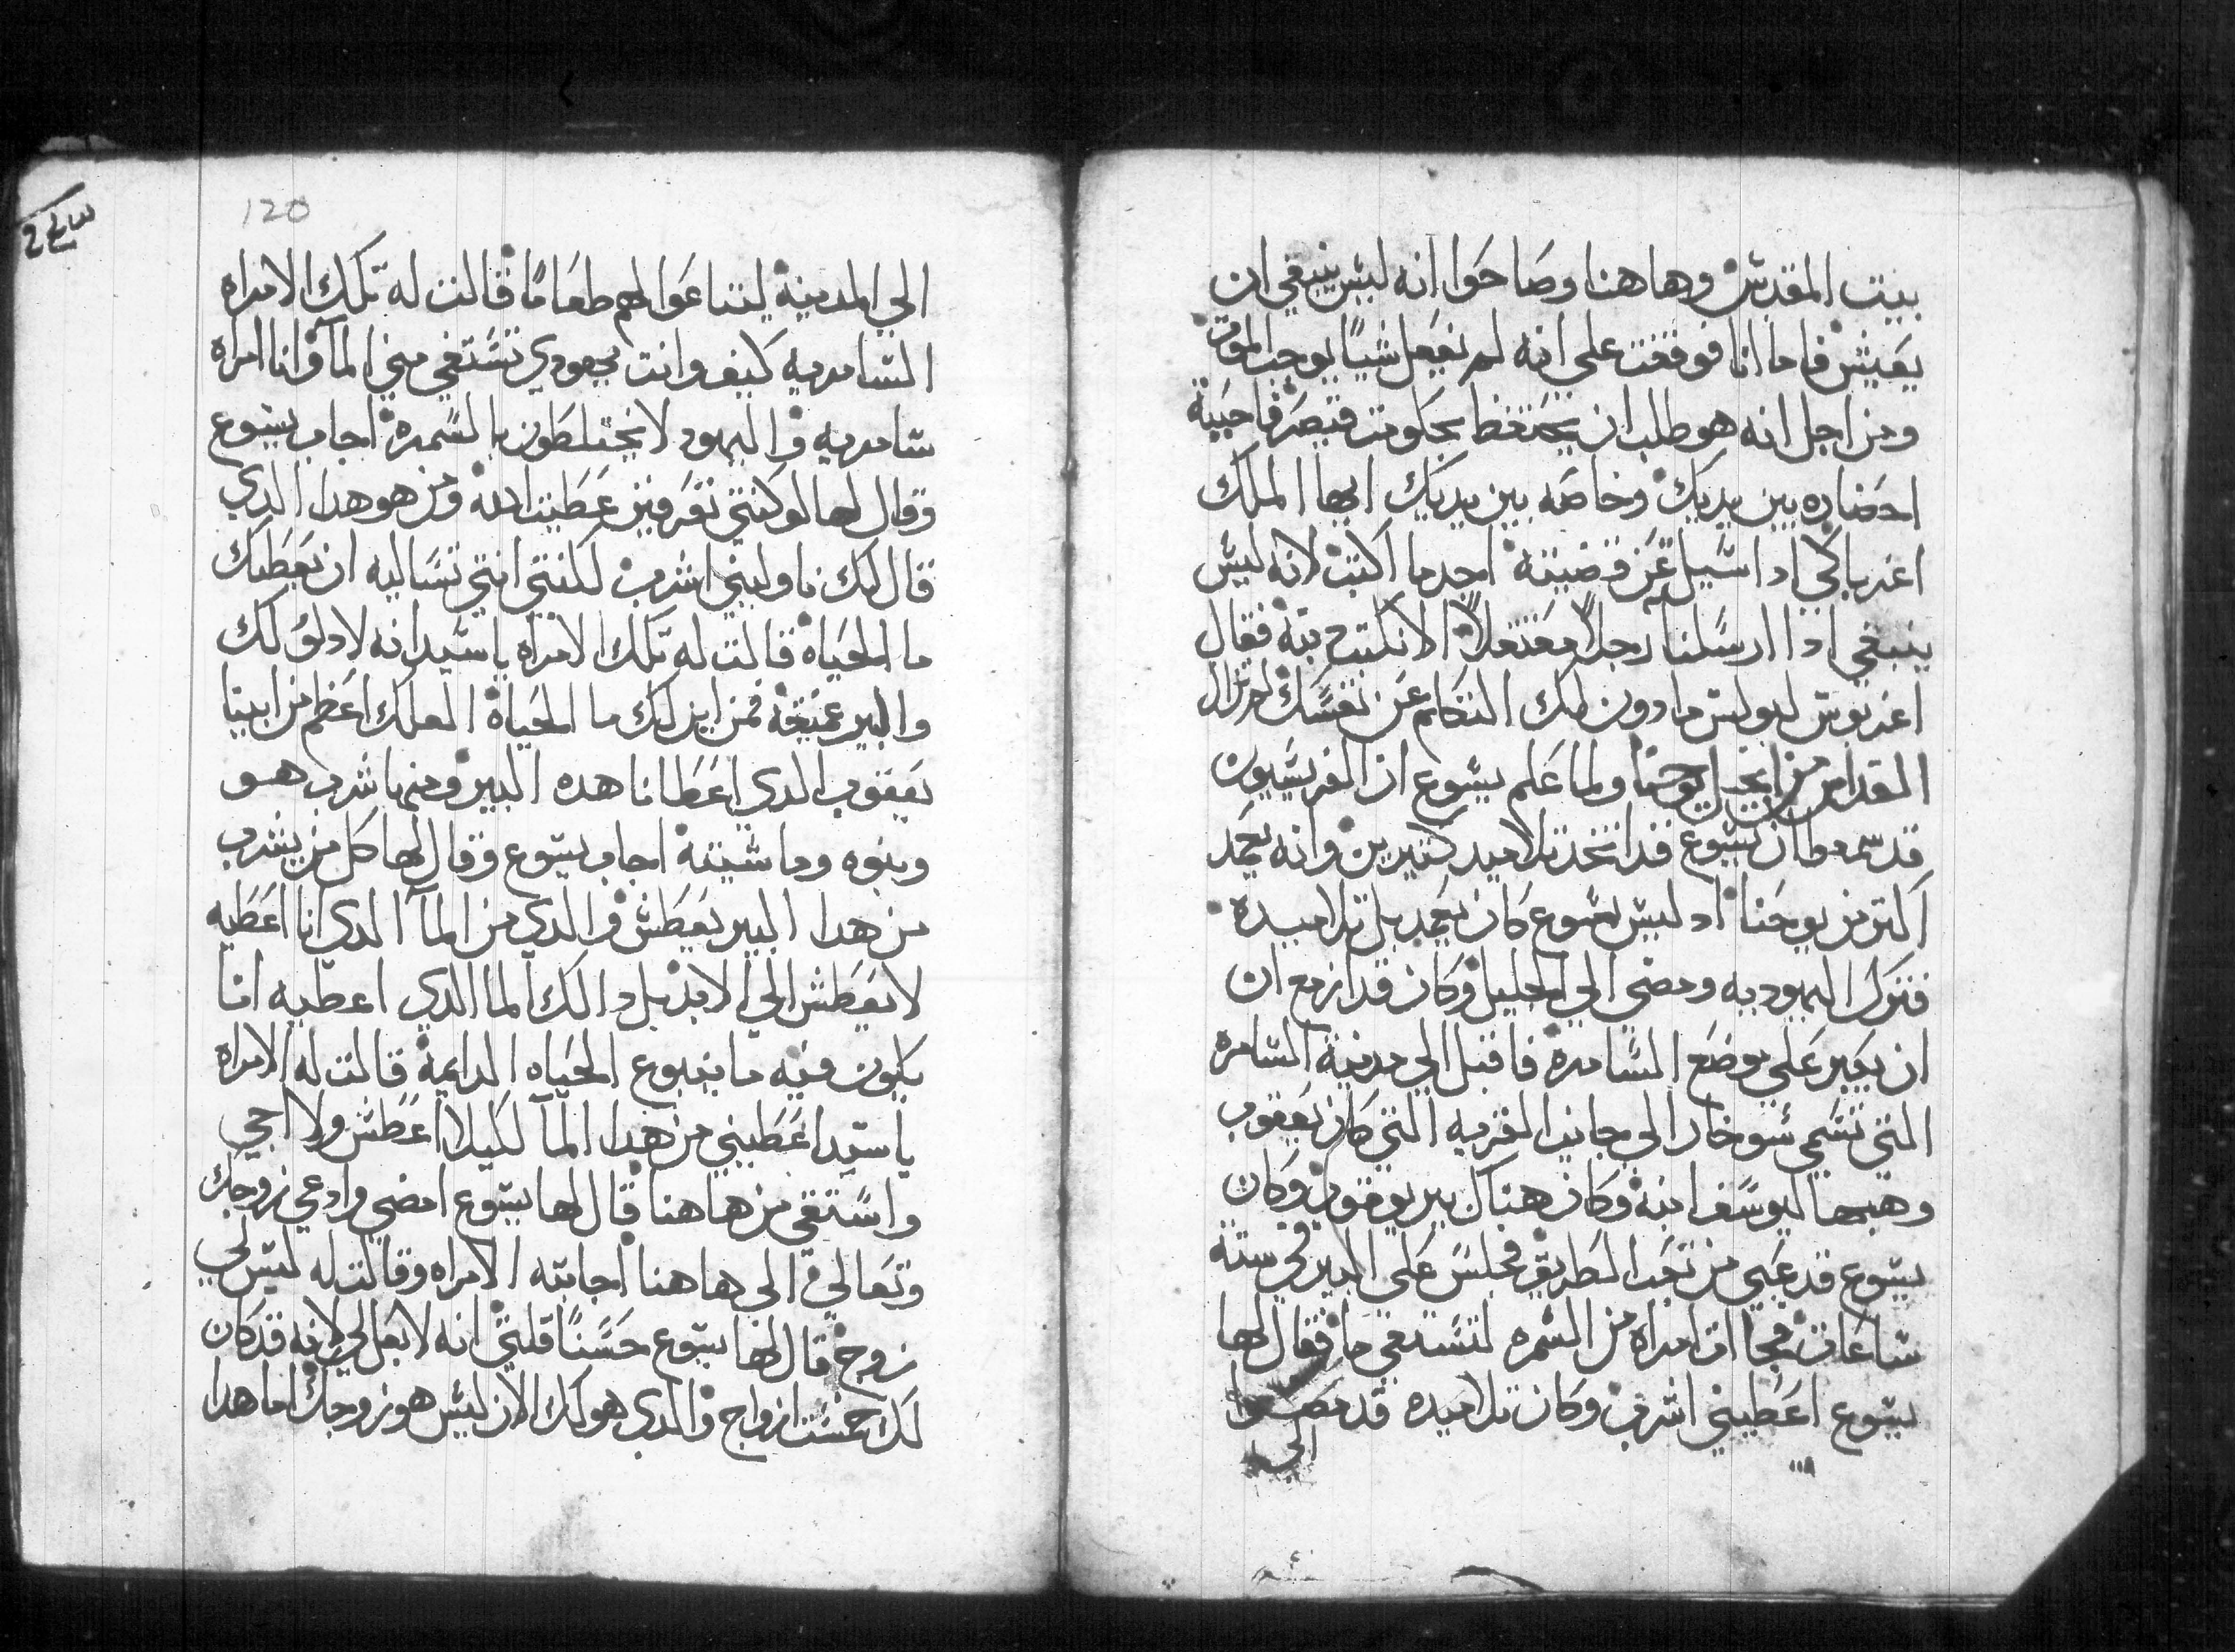 بيت المقدس وهاهنا وصاحوا انه ليس ينبغي ان
يعيش فاما انا فوقفت علي انه لم يفعل شيًا يوجب الموت
ومن اجل انه هو طلب ان يحتفظ بحكومت قيصر فاحببة
احضاره بين يديك وخاصه بين يديك ايها الملك
اغرباكي اذا سيل عن قضيته اجد ما اكتب لانه ليس
ينبغي اذا ارسلنا رجلاً معتقلاً الا نكتب فقال
اغربوس لبولس مادون لك التكلم عن نفسك
المقدس من انجيل يوحنا ولما علم يسوع ان الفريسيون
قد سمعوا ان يسوع قد اتخد تلاميد كتيرين وانه يعمد
اكتر من يوحنا اد ليس يسوع كان يعمد بل تلاميده
فترك اليهوديه ومضي الي الجليل وكان قد ازمع ان
ان يعبر علي موضع السامرة فاقبل الي مدينة السامره
التي تسمي سوخار الي جانب القريه التي كان يعقوب
وهبها ليوسف ابنه وكان هناك بير يعقوب وكان
يسوع قد عيي من تعب الطريق فجلس علي البير في ستة
ساعات فجات امراه من السمره لتستقي ما فقال لها
يسوع اعطيني اشرب وكان تلاميده قد مضوا
الي
١١٨
120
الي المدينة ليتناعوا لهم طعامًا قالت له تلك الامراه
السامريه كيف وانت يهودي تستقي مني المآ وانا امراه
سامريه واليهود لا يختلطون بالسمرة اجاب يسوع
وقال لها لو كنتي تعرفين عطيت الله ومن هو هدا الدي
قال لك ناوليني اشرب لكنتي انتي تساليه ان يعطيك
ما الحياة قالت له تلك الامراه يا سيد انه لا دلو لك
والبير عميقة فمن اين لك ما الحياة العلك اعظم من ابينا
يعقوب الدي اعطانا هده البير ومنها شرب هو
وبنوه وماشيته اجاب يسوع وقال لها كل من يشرب
من هدا البير يعطش والدي من المآ الدي انا اعطيه
لا يعطش الي الابد بل دالك الما الدي اعطيه انا
يكون فيه ما ينبوع الحياه الدايمة قالت له الامراه
يا سيد اعطيني من هدا المآ لكيلا اعطش ولا اجي
واستقي من هاهنا قال لها يسوع امضي وادعي زوجك
وتعالي الي هاهنا اجابته الامراه وقالت له ليس لي
زوج قال لها يسوع حسنًا قلتي انه لا بعل لي لانه قد كان
لك خمست ازواج والدي هو لك الان ليس هو زوجك اما هدا